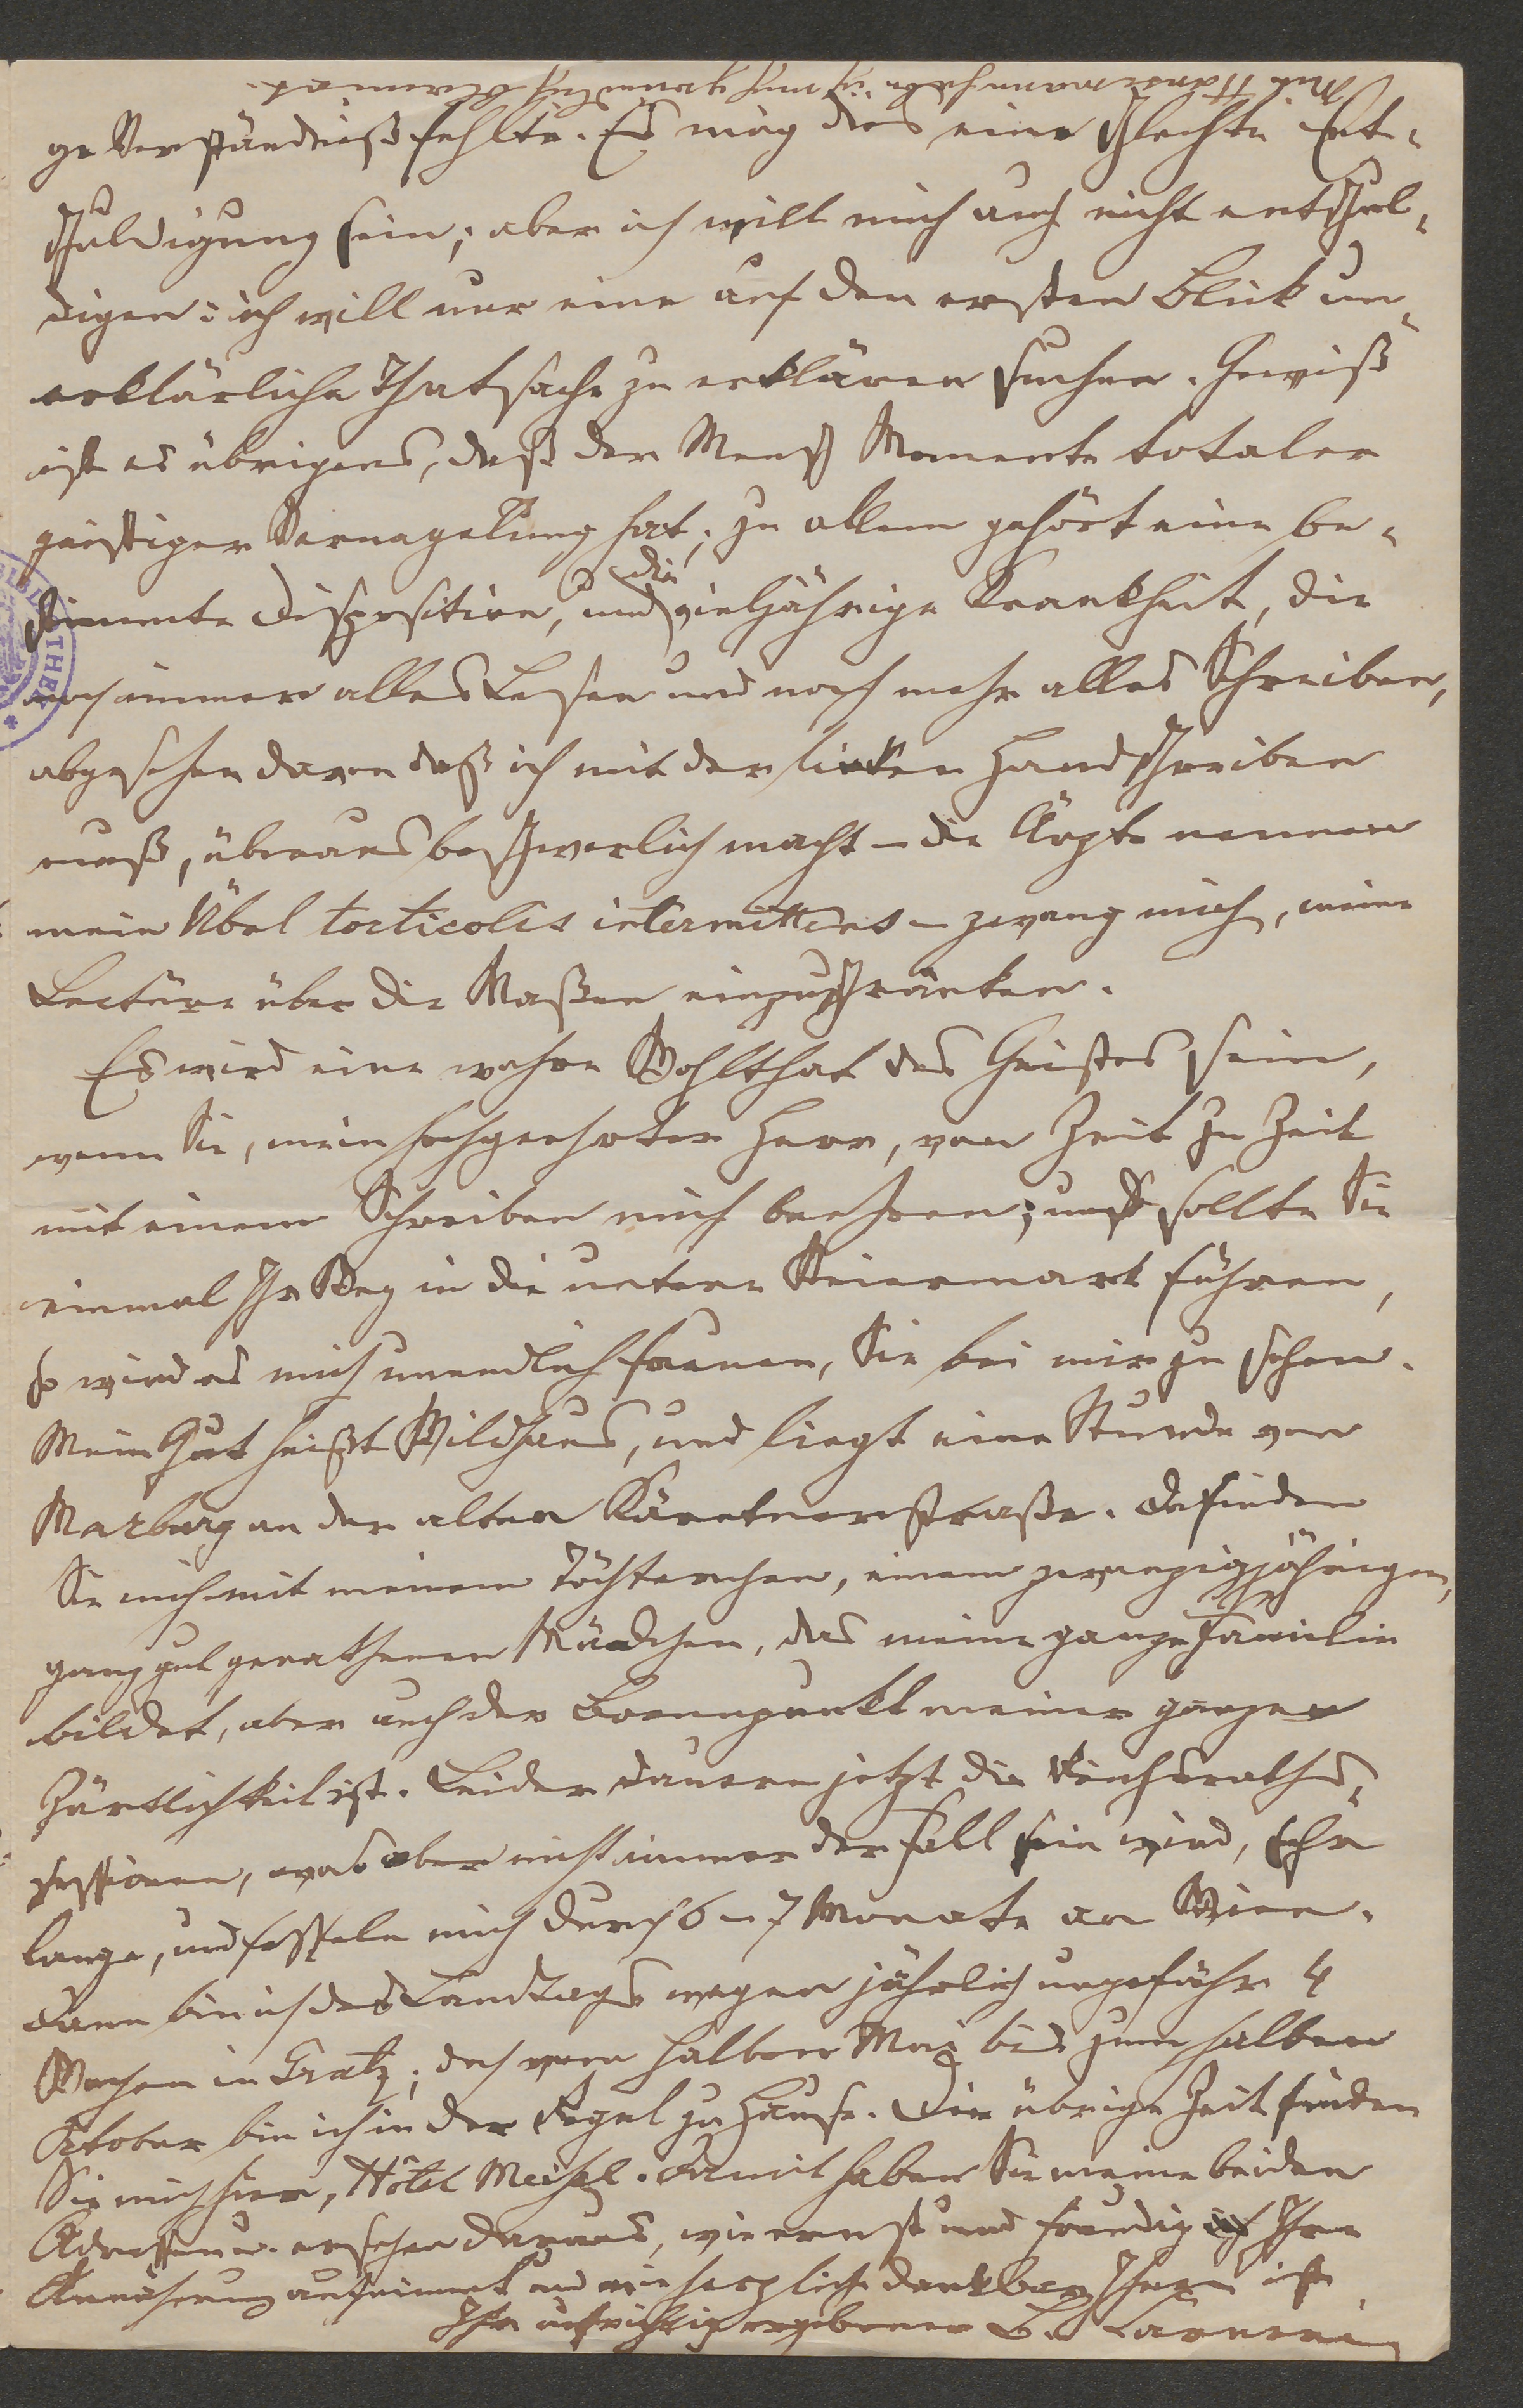 ge Verständniß fehlte. Es mag dies eine schlechte Ent-
schuldigung sein; aber ich will mich auch nicht entschul-
digen: ich will nur eine auf den ersten Blick un-
erklärliche Thatsache zu erklären suchen. Gewiß
ist es übrigens, daß der Mensch Momente totaler
geistiger Vernagelung hat; zu allem gehört eine be-
stimmte Disposition, und die vieljährige Krankheit, die
noch immer alles Lesen und noch mehr alles Schreiben,
abgesehen davon daß ich mit der linken Hand schreiben
muß, überaus beschwerlich macht – die Ärzte nennen
mein Übel torticolis intermittens – zwang mich, meine
Lectüre über die Maßen einzuschränken.
Es wird eine wahre Wohlthat des Geistes sein,
wenn Sie, mein hochgeehrter Herr, von Zeit zu Zeit
mit einem Schreiben mich beehren; und sollte Sie
einmal Ihr Weg in die untere Steiermark führen,
so wird es mich unendlich freuen, Sie bei mir zu sehen.
Mein Gut heißt Wildhaus, und liegt eine Stunde von
Marburg an der alten Kärntnerstraße. Da finden
Sie mich mit meinem Töchterchen, einem zwanzigjährigen,
ganz gut gerathenen Mädchen, das meine ganze Familie
bildet, aber auch der Brennpunkt meiner ganzen
Zärtlichkeit ist. Leider dauern jetzt die Reichsraths-
sessionen, was aber nicht immer der Fall sein wird, sehr
lange, und fesseln mich durch 6–7 Monate an Wien.
Dann bin ich des Landtags wegen jährlich ungefähr 4
Wochen in Gratz; doch vom halben Mai bis zum halben
Oktober bin ich in der Regel zu Hause. Die übrige Zeit finden
Sie mich hier, Hôtel Meissl. Damit haben Sie meine beiden
Adressen u. ersehen daraus, wie ernst und freudig ich Ihre
Annäherung aufnimmt und wie herzlich dankbar Ihnen ist
Ihr aufrichtig ergebener B. Carneri
Mit Hansemann habe ich mich gründlich blamirt.